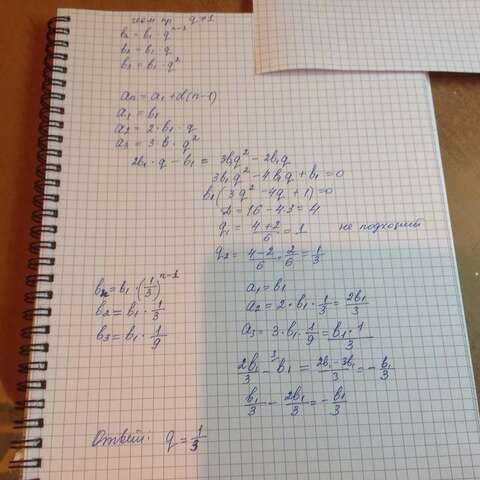 геом пр q ≠ 1
bn = b1 · q^(n-1)
b2 = b1 · q
b3 = b1 · q²
an = a1 + d(n-1)
a1 = b1
a2 = 2 · b1 · q
a3 = 3 b · q²
2b1 · q - b1 = 3b1q² - 2b1q
3b1q² - 4b1q + b1 = 0
b1(3q² - 4q + 1) = 0
D = 16 - 4·3 = 4
q1 = (4+2)/6 = 1 не подходит
q2 = (4-2)/6 = 2/6 = 1/3
bn = b1 · (1/3)^(n-1)
b2 = b1 · 1/3
b3 = b1 · 1/9
a1 = b1
a2 = 2 · b1 · 1/3 = 2b1/3
a3 = 3 · b1 · 1/9 = b1 · 1/3
2b1/3 - b1 = (2b1 - 3b1)/3 = - b1/3
b1/3 - 2b1/3 = - b1/3
Ответ: q = 1/3